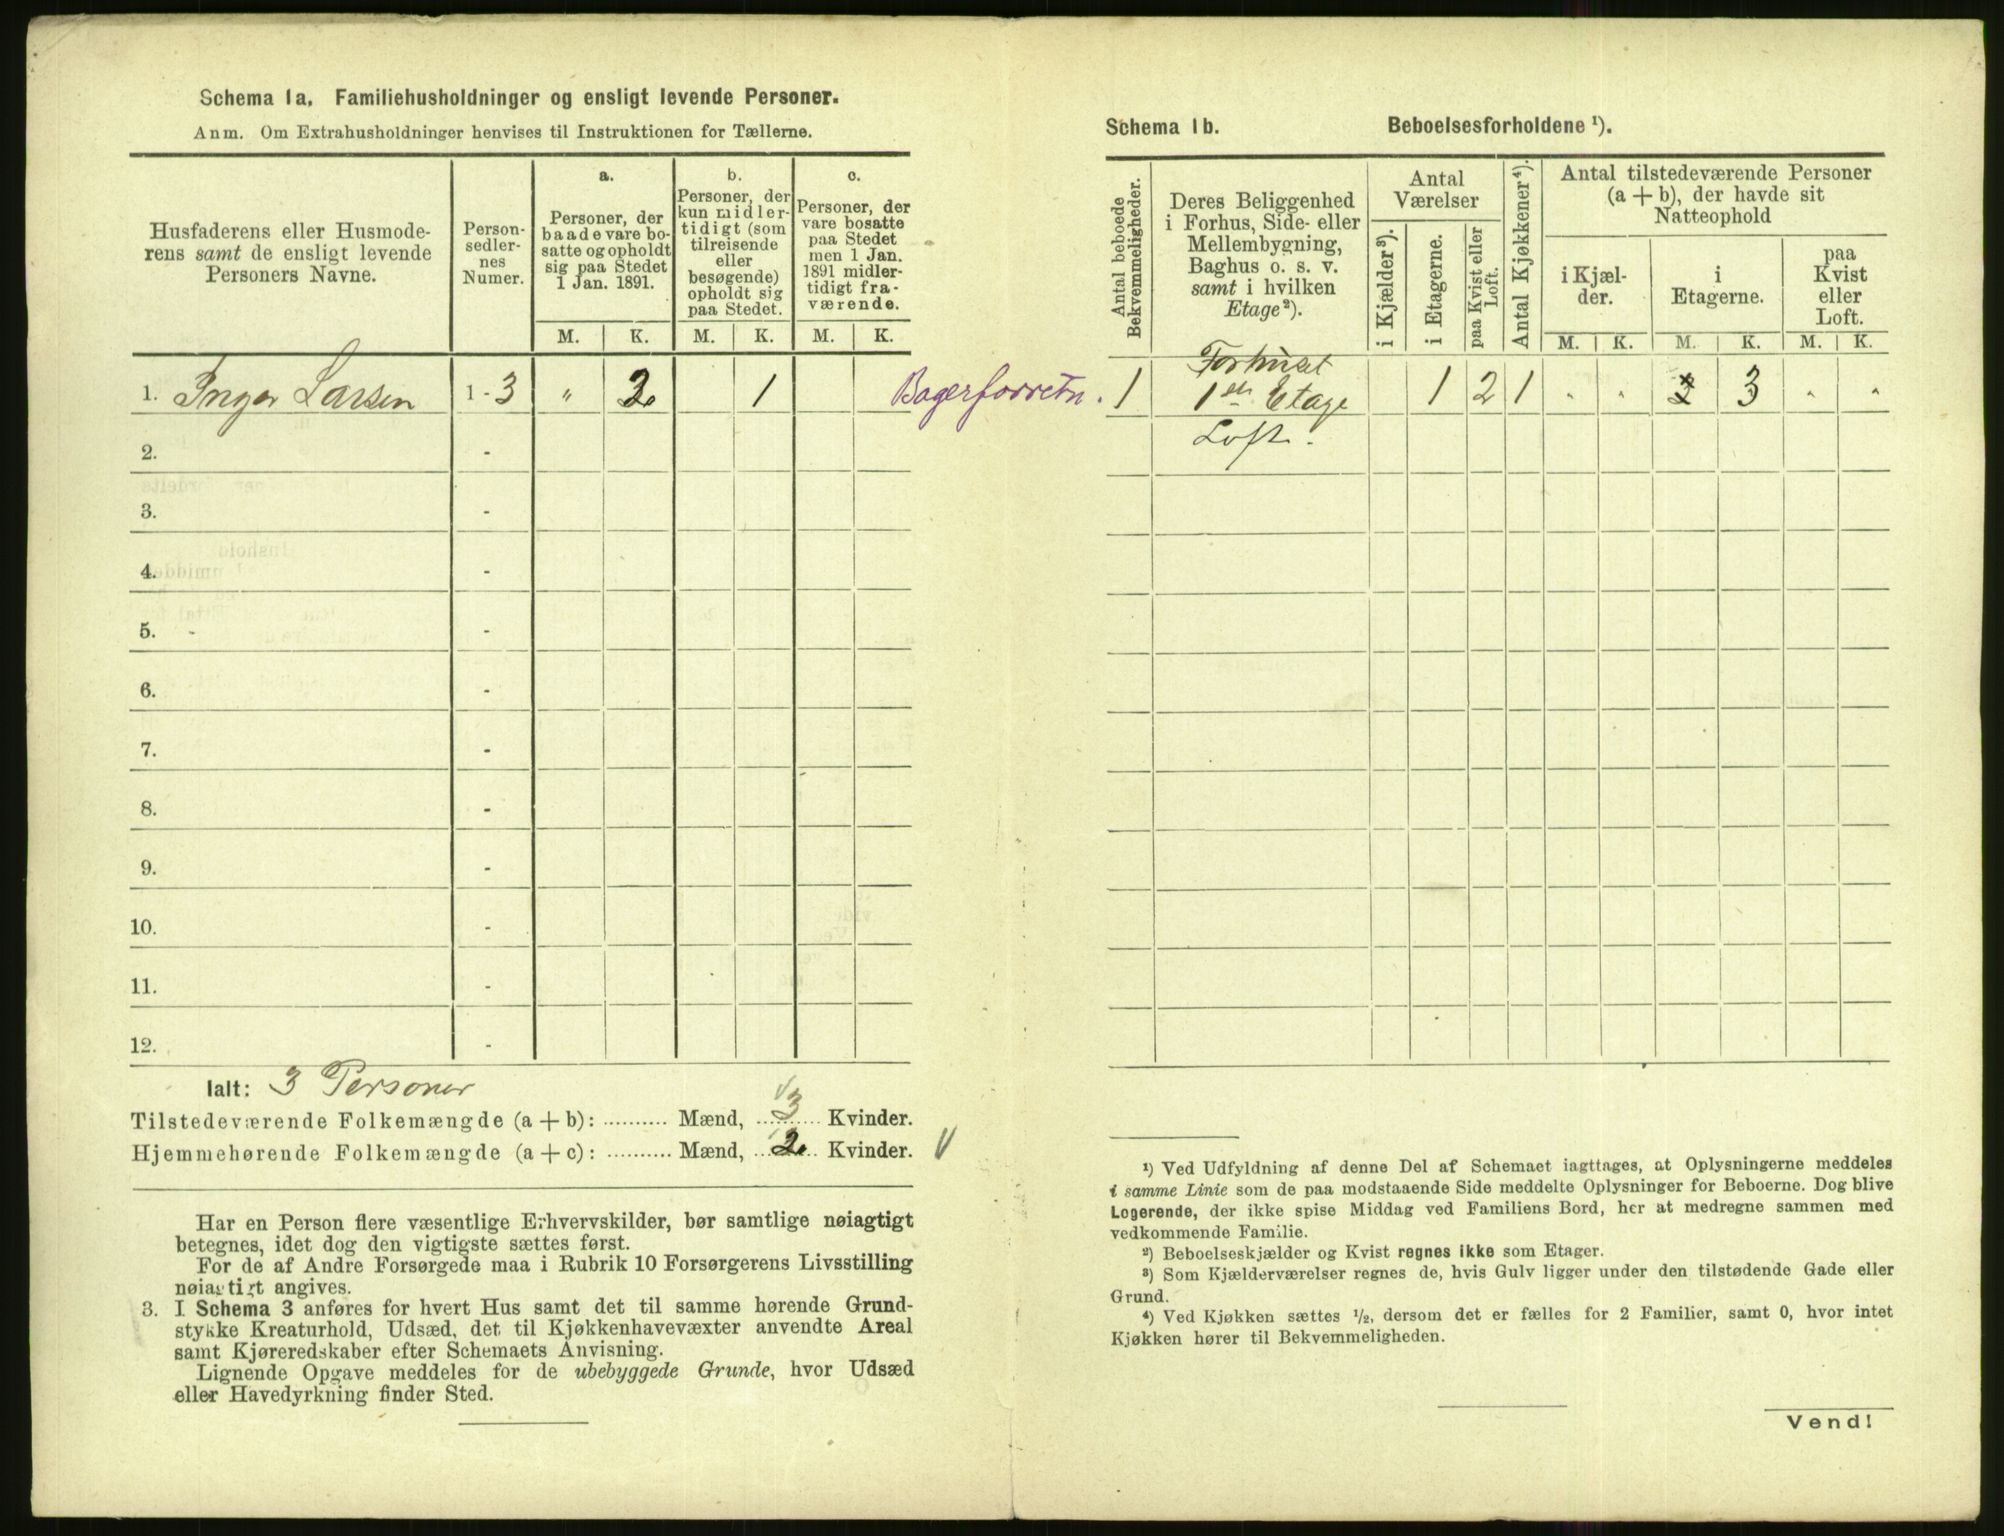 Schema 1a. Familiehusholdninger og ensligt levende Personer.
Anm. Om Extrahusholdninger henvises til Instruktionen for Tællerne.
Husfaderens eller Husmode-
rens samt de ensligt levende
Personers Navne.
Person-
sedler-
nes
Numer.
a.
Personer, der
baade vare bo-
satte og opholdt
sig paa Stedet
1 Jan. 1891.
b.
Personer, der
kun midler-
tidigt (som
tilreisende
eller
besøgende)
opholdt sig
paa Stedet.
c.
Personer, der
vare bosatte
paa Stedet
men 1 Jan.
1891 midler-
tidigt fra-
værende.
M. K. M. K. M. K.
1. Inger Larsen 1 - 3 " 2 1 Bagerforretn.
2. -
3. -
4. -
5. -
6. -
7. -
8. -
9. -
10. -
11. -
12. -
Ialt: 3 Personer
Tilstedeværende Folkemængde (a + b): .......... Mænd, 3 Kvinder.
Hjemmehørende Folkemængde (a + c): .......... Mænd, 2 Kvinder.
Har en Person flere væsentlige Erhvervskilder, bør samtlige nøiagtigt
betegnes, idet dog den vigtigste sættes først.
For de af Andre Forsørgede maa i Rubrik 10 Forsørgerens Livsstilling
nøiagtigt angives.
3. I Schema 3 anføres for hvert Hus samt det til samme hørende Grund-
stykke Kreaturhold, Udsæd, det til Kjøkkenhavevæxter anvendte Areal
samt Kjøreredskaber efter Schemaets Anvisning.
Lignende Opgave meddeles for de ubebyggede Grunde, hvor Udsæd
eller Havedyrkning finder Sted.
Schema 1b. Beboelsesforholdene ¹).
Antal beboede
Bekvemmeligheder.
Deres Beliggenhed
i Forhus, Side- eller
Mellembygning,
Baghus o. s. v.
samt i hvilken
Etage²).
Antal
Værelser
i Kjælder³).
i Etagerne.
paa Kvist eller
Loft.
Antal Kjøkkener⁴).
Antal tilstedeværende Personer
(a + b), der havde sit
Natteophold
i Kjæl-
der.
i
Etagerne.
paa
Kvist
eller
Loft.
M. K. M. K. M. K.
Forhuset
1 1ste Etage 1 2 1 " " 3 " "
Loft.
¹) Ved Udfyldning af denne Del af Schemaet iagttages, at Oplysningerne meddeles
i samme Linie som de paa modstaaende Side meddelte Oplysninger for Beboerne. Dog blive
Logerende, der ikke spise Middag ved Familiens Bord, her at medregne sammen med
vedkommende Familie.
²) Beboelseskjælder og Kvist regnes ikke som Etager.
³) Som Kjælderværelser regnes de, hvis Gulv ligger under den tilstødende Gade eller
Grund.
⁴) Ved Kjøkken sættes ½, dersom det er fælles for 2 Familier, samt 0, hvor intet
Kjøkken hører til Bekvemmeligheden.
Vend!